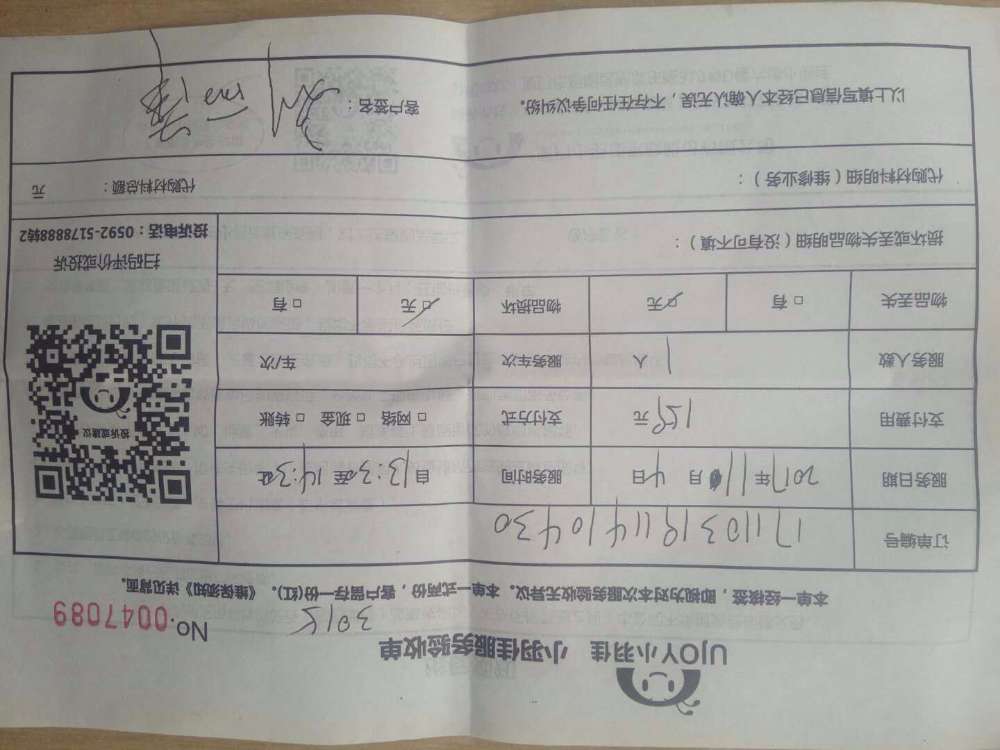 UJOY小羽佳 小羽佳服务验收单
3015
No.0047089
本单一经核签，即视为对本次服务验收无异议。本单一式两份，客户留存一份(红)。《维保须知》详见背面。
订单编号 171103191141 0430
服务日期 2017年11月4日 服务时间 自13:30至14:30止
支付费用 159元 支付方式 □网络 □现金 □转账
服务人数 1人 服务车次 车/次
物品丢失 □有 □无 物品损坏 □无 □有
投诉或建议
扫码评价或投诉
投诉电话：0592-5178888转2
损坏或丢失物品明细（没有可不填）：
代购材料明细（维修业务）： 代购材料总额： 元
以上填写信息已经本人确认无误，不存在任何争议纠纷。 客户签名：